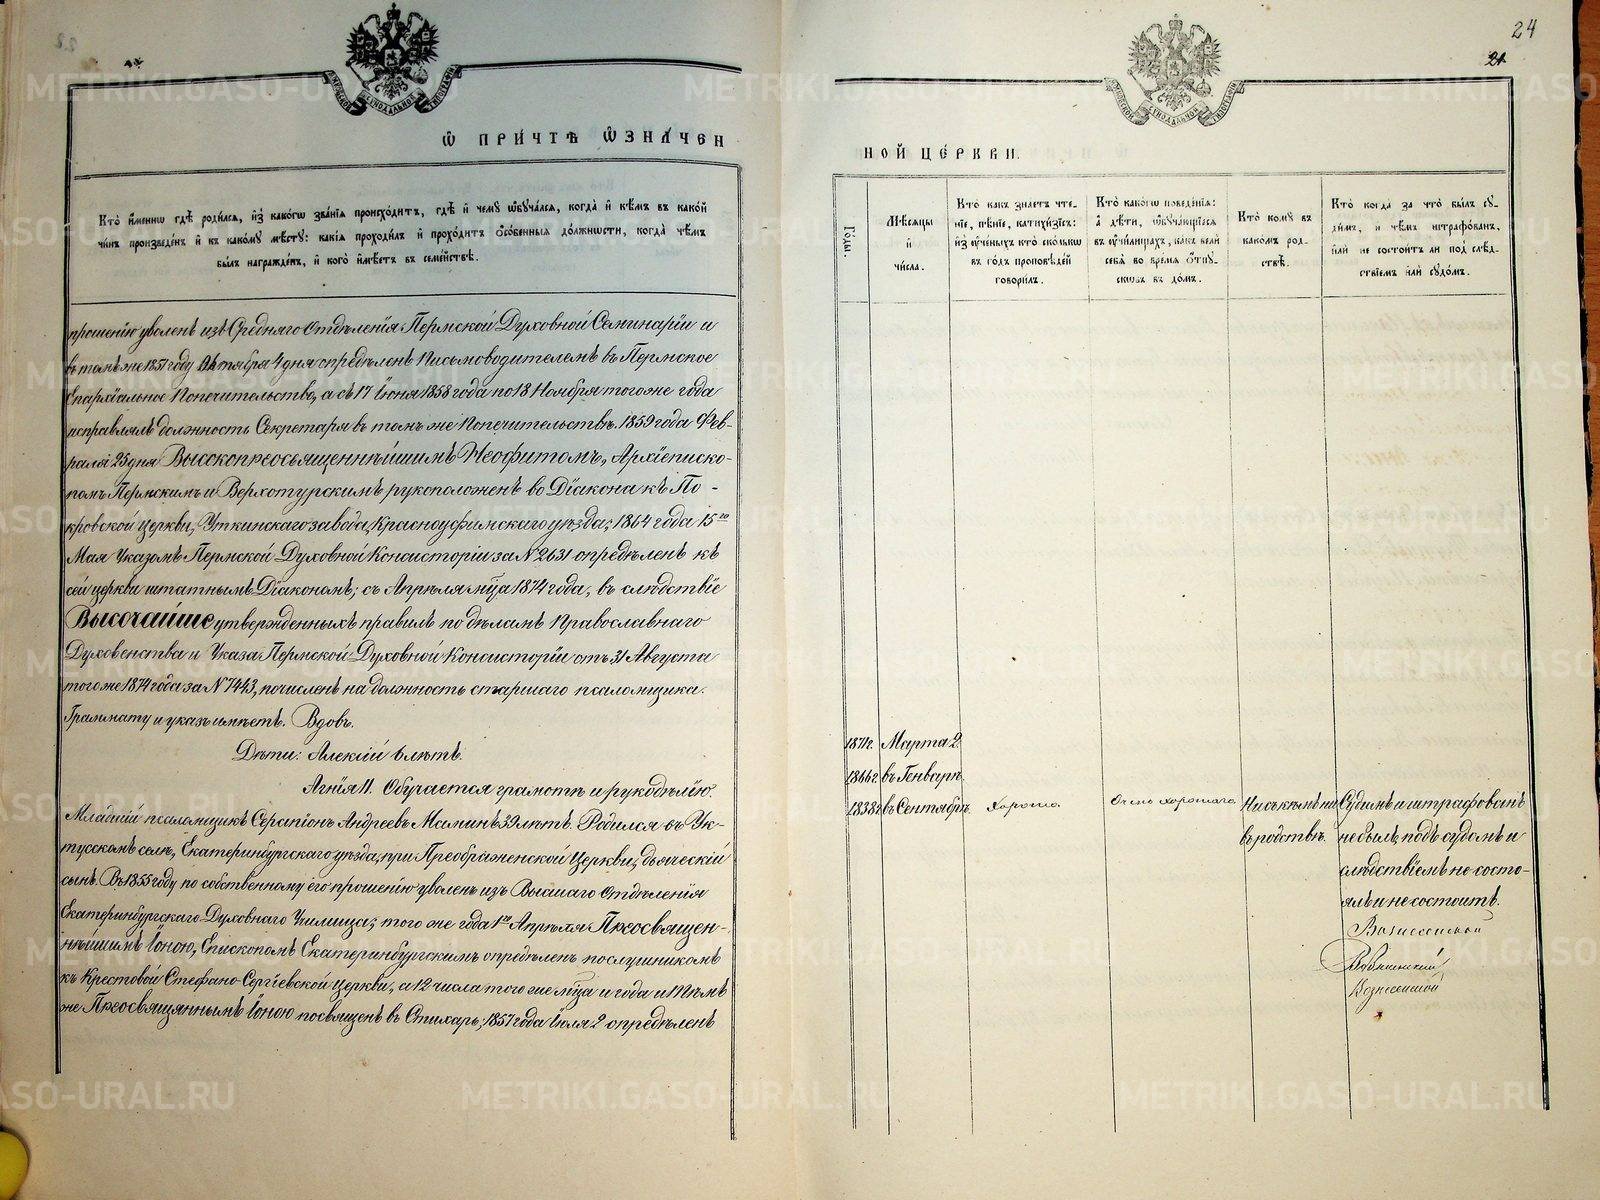 24
21
МОСКОВСКОЙ СИНОДАЛЬНОЙ ТИПОГРАФІИ
Ѡ ПРИ́ЧТѢ Ѡ҆ЗНА́ЧЕН
Кто̀ и҆́меннѡ гдѣ̀ роди́лсѧ, и҆з̾ како́гѡ зва́нїѧ происхо́дитъ, гдѣ̀ и҆ чемꙋ̀ ѡ҆бꙋча́лсѧ, когда̀ и҆ кѣ́мъ въ како́й
чи́нъ произведе́нъ и҆ къ како́мꙋ мѣ́стꙋ: какі̑ѧ проходи́лъ и҆ прохо́дитъ ѻ҆со́бенныѧ до́лжности, когда̀ чѣ́мъ
бы́лъ награжде́нъ, и҆ кого̀ и҆мѣ́етъ въ семе́йствѣ.
прошенію уволенъ изъ Средняго Отдѣленія Пермской Духовной Семинаріи и
въ томъ же 1857 году Октября 4 дня опредѣленъ Письмоводителемъ въ Пермское
Епархіальное Попечительство, а съ 17 Іюня 1858 года по 18 Ноября того же года
исправлялъ должность Секретаря въ томъ же Попечительствѣ. 1859 года Фев-
раля 25 дня Высокопреосвященнѣйшимъ Неофитомъ, Архіеписко-
помъ Пермскимъ и Верхотурскимъ рукоположенъ во Діакона къ По-
кровской Церкви, Уткинскаго завода, Красноуфимскаго уѣзда; 1864 года 15го
Мая Указомъ Пермской Духовной Консисторіи за №2631 опредѣленъ къ
сей церкви штатнымъ Діакономъ; съ Апрѣля мца 1874 года, въ слѣдствіе
Высочайше утвержденныхъ правилъ по дѣламъ Православнаго
Духовенства и Указа Пермской Духовной Консисторіи отъ 31 Августа
того же 1874 года за №7443, почисленъ на должность старшаго псаломщика.
Граммату и указъ имѣетъ. Вдовъ.
Дѣти: Алексій 6 лѣтъ.
Агнія 11. Обучается грамотѣ и рукодѣлію.
Младшій псаломщикъ Серапіонъ Андреевъ Маминъ 39 лѣтъ. Родился въ Ук-
тусскомъ селѣ, Екатеринбургскаго уѣзда, при Преображенской Церкви, дьяческій
сынъ. Въ 1855 году по собственному его прошенію уволенъ изъ Высшаго Отдѣленія
Екатеринбургскаго Духовнаго Училища; того же года 1го Апрѣля Преосвящен-
нѣйшимъ Іоною, Епископомъ Екатеринбургскимъ опредѣленъ послушникомъ
къ Крестовой Стефано-Сергіевской Церкви, а 12 числа того же мца и года и тѣмъ
же Преосвященнымъ Іоною посвященъ въ Стихарь; 1857 года Іюля 2 опредѣленъ
МОСКОВСКОЙ СИНОДАЛЬНОЙ ТИПОГРАФІИ
НОЙ ЦЕ́РКВИ.
Го́ды.
Мѣ́сѧцы
и҆
чи́сла.
Кто̀ ка́къ зна́етъ чте́-
нїе, пѣ́нїе, катихи́зїсъ:
и҆з̾ ᲂу҆че́ныхъ кто̀ ско́лькѡ
въ го́дъ про́повѣдей
говори́лъ.
Кто̀ како́гѡ поведе́нїѧ:
а҆ дѣ́ти, ѡ҆бꙋча́ющїѧсѧ
въ ᲂу҆чи́лищахъ, ка́къ велѝ
себѐ во вре́мѧ ѿпꙋ-
скѡ́въ въ до́мъ.
Кто̀ комꙋ̀ въ
како́мъ род-
ствѣ̀.
Кто̀ когда̀ за что̀ бы́лъ сꙋ-
ди́мъ, и҆ тѣ́мъ штрафо́ванъ,
и҆лѝ не состои́тъ ли под̾ слѣ́д-
ствїемъ и҆лѝ сꙋдо́мъ.
1871г. Марта 2.
1866г. въ Генварѣ.
1838г. въ Сентябрѣ. Хорошо. Очень хорошаго. Ни съ кѣмъ ни Судимъ и штрафованъ
въ родствѣ. не былъ, подъ судомъ и
слѣдствіемъ не состо-
ялъ и не состоитъ.
Вознесенской
Вознесенской
METRIKI.GASO-URAL.RU